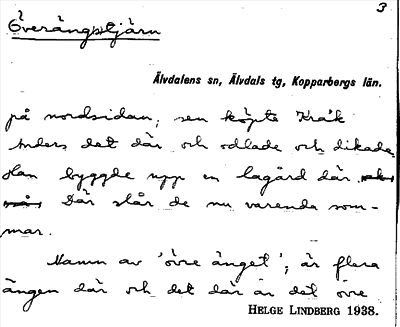 3
Överängstjärn
Älvdalens sn, Älvdals tg, Kopparbergs län.
på nordsidan, sen köpte Kråk
Anders det där och odlade och dikade.
Han byggde upp en lagård där
Där slår de nu varenda som-
mar.
Namn av 'övre änget'; är flera
ängen där och det där är det övre
HELGE LINDBERG 1938.